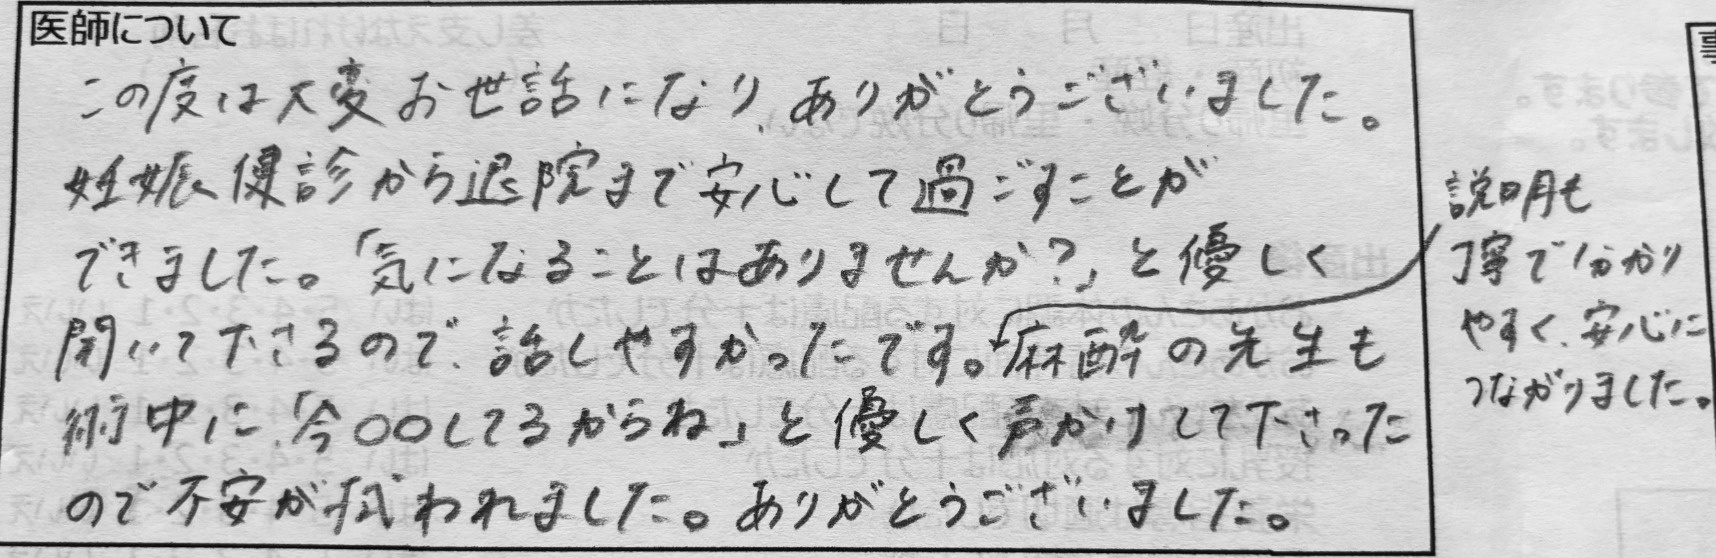 医師について
この度は大変お世話になり、ありがとうございました。
妊娠健診から退院まで安心して過ごすことが
できました。「気になることはありませんか？」と優しく
聞いて下さるので、話しやすかったです。麻酔の先生も
術中に、「今○○してるからね」と優しく声かけして下さった
ので不安が拭われました。ありがとうございました。
説明も
丁寧で分かり
やすく、安心に
つながりました。